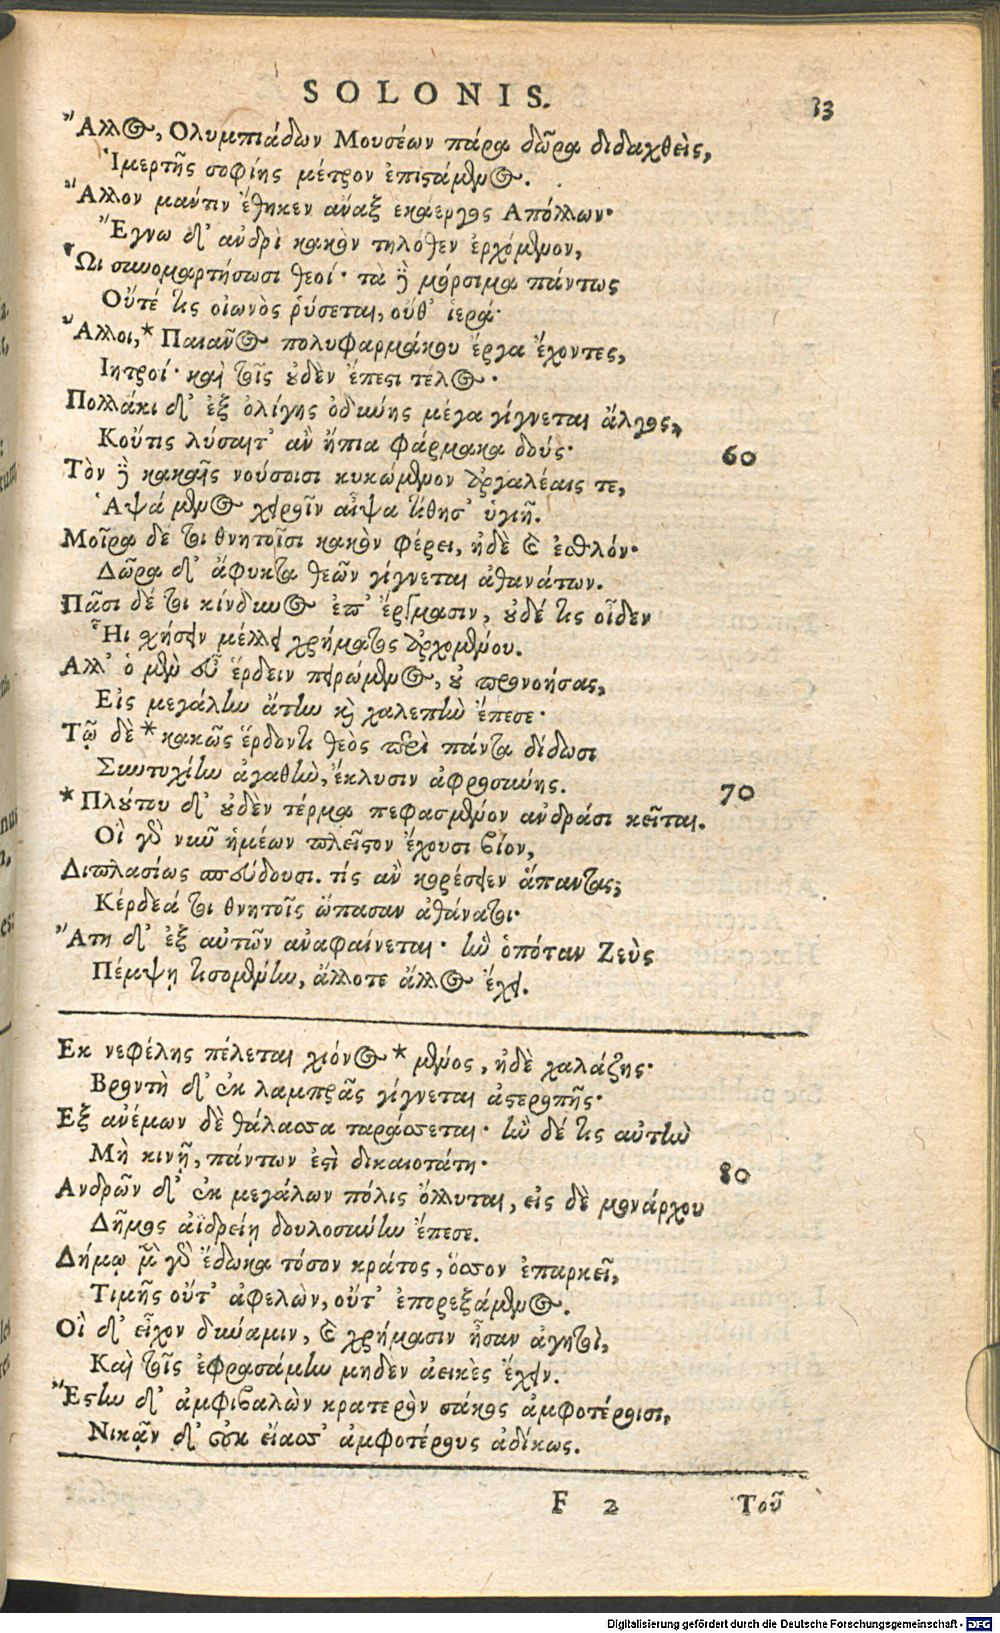 SOLONIS. 33
Ἄλλος, Ολυμπιάδων Μουσέων πάρα δῶρα διδαχθεὶς,
Ἱμερτῆς σοφίης μέτρον ἐπιστάμενος.
Ἄλλον μαύτιν ἔθηκεν ἄναξ ἑκάεργος Απόλλων·
Ἔγνω δ' ἀνδρὶ κακὸν τηλόθεν ἐρχόμενον,
Ὧι συνομαρτήσωσι θεοί· τὰ γὰρ μόρσιμα πάντως
Οὔτέ τις οἰωνὸς ῥύσεται, οὔθ' ἱερά·
Ἄλλοι,* Παιῶνος πολυφαρμάκου ἔργα ἔχοντες,
Ιητροί· καὶ τοῖς οὐδὲν ἔπεστι τέλος·
Πολλάκι δ' ἐξ ὀλίγης ὀδύνης μέγα γίγνεται ἄλγος,
Κοὔτις λύσαιτ' ἂν ἤπια φάρμακα δούς· 60
Τὸν γὰρ κακαῖς νούσοισι κυκώμενον ἀργαλέαις τε,
Ἁψάμενος χειροῖν αἶψα τίθησ' ὑγιῆ.
Μοῖρα δέ τοι θνητοῖσι κακὸν φέρει, ἠδὲ καὶ ἐσθλόν·
Δῶρα δ' ἄφυκτα θεῶν γίγνεται ἀθανάτων.
Πᾶσι δέ τοι κίνδυνος ἐπ' ἔργμασιν, οὐδέ τις οἶδεν
Ἧι χήσειν μέλλει χρήματος ἀρχομένου.
Αλλ' ὁ μὲν εὖ ἕρδειν πειρώμενος, οὐ προνοήσας,
Εἰς μεγάλην ἄτην καὶ χαλεπὴν ἔπεσε·
Τῷ δὲ * κακῶς ἕρδοντι θεὸς περὶ πάντα δίδωσι
Συντυχίην ἀγαθὴν, ἔκλυσιν ἀφροσύνης. 70
* Πλούτου δ' οὐδὲν τέρμα πεφασμένον ἀνδράσι κεῖται.
Οἳ γὰρ νῦν ἡμέων πλεῖστον ἔχουσι βίον,
Διπλασίως σπεύδουσι. τίς ἂν κορέσειεν ἅπαντας;
Κέρδεά τοι θνητοῖς ὤπασαν ἀθάνατοι·
Ἄτη δ' ἐξ αὐτῶν ἀναφαίνεται· ἣν ὁπόταν Ζεὺς
Πέμψῃ τισομένην, ἄλλοτε ἄλλος ἔχει.
Εκ νεφέλης πέλεται χιόνος * μένος, ἠδὲ χαλάζης·
Βροντὴ δ' ἐκ λαμπρᾶς γίγνεται ἀστεροπῆς·
Εξ ἀνέμων δὲ θάλασσα ταράσσεται· ἢν δέ τις αὐτὴν
Μὴ κινῇ, πάντων ἐστὶ δικαιοτάτη· 80
Ανδρῶν δ' ἐκ μεγάλων πόλις ὄλλυται, εἰς δὲ μονάρχου
Δῆμος ἀϊδρείῃ δουλοσύνην ἔπεσε.
Δήμῳ μὲν γὰρ ἔδωκα τόσον κράτος, ὅσσον ἐπαρκεῖ,
Τιμῆς οὔτ' ἀφελὼν, οὔτ' ἐπορεξάμενος.
Οἳ δ' εἶχον δύναμιν, καὶ χρήμασιν ἦσαν ἀγητοὶ,
Καὶ τοῖς ἐφρασάμην μηδὲν ἀεικὲς ἔχειν.
Ἔστην δ' ἀμφιβαλὼν κρατερὸν σάκος ἀμφοτέροισι,
Νικᾷν δ' οὐκ εἴασ' ἀμφοτέρους ἀδίκως.
F 2 Τοῦ
Digitalisierung gefördert durch die Deutsche Forschungsgemeinschaft - DFG